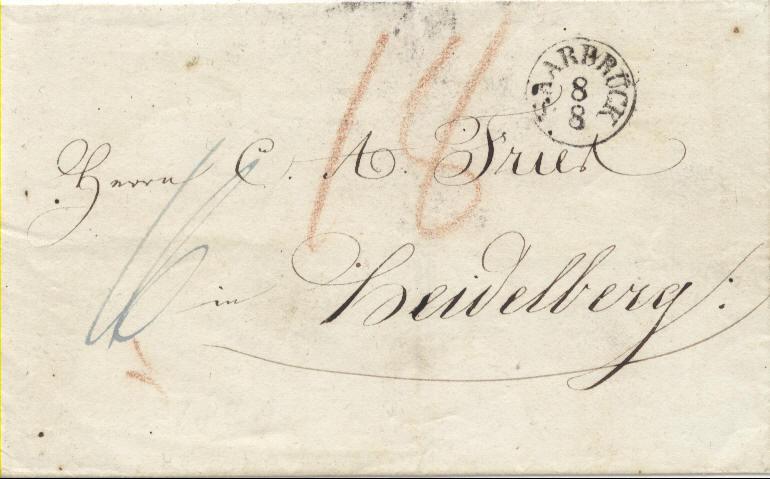 SAARBRÜCK
8
8
18
Herrn C. A. Fries
in Heidelberg